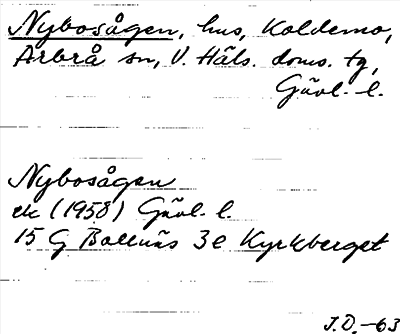 Nybosågen, hus, Koldemo,
Arbrå sn, V. Häls. doms. tg,
Gävl. l.
Nybosågen
ek (1958) Gävl. l.
15 G Bollnäs 3e Kyrkberget
J.D.-63